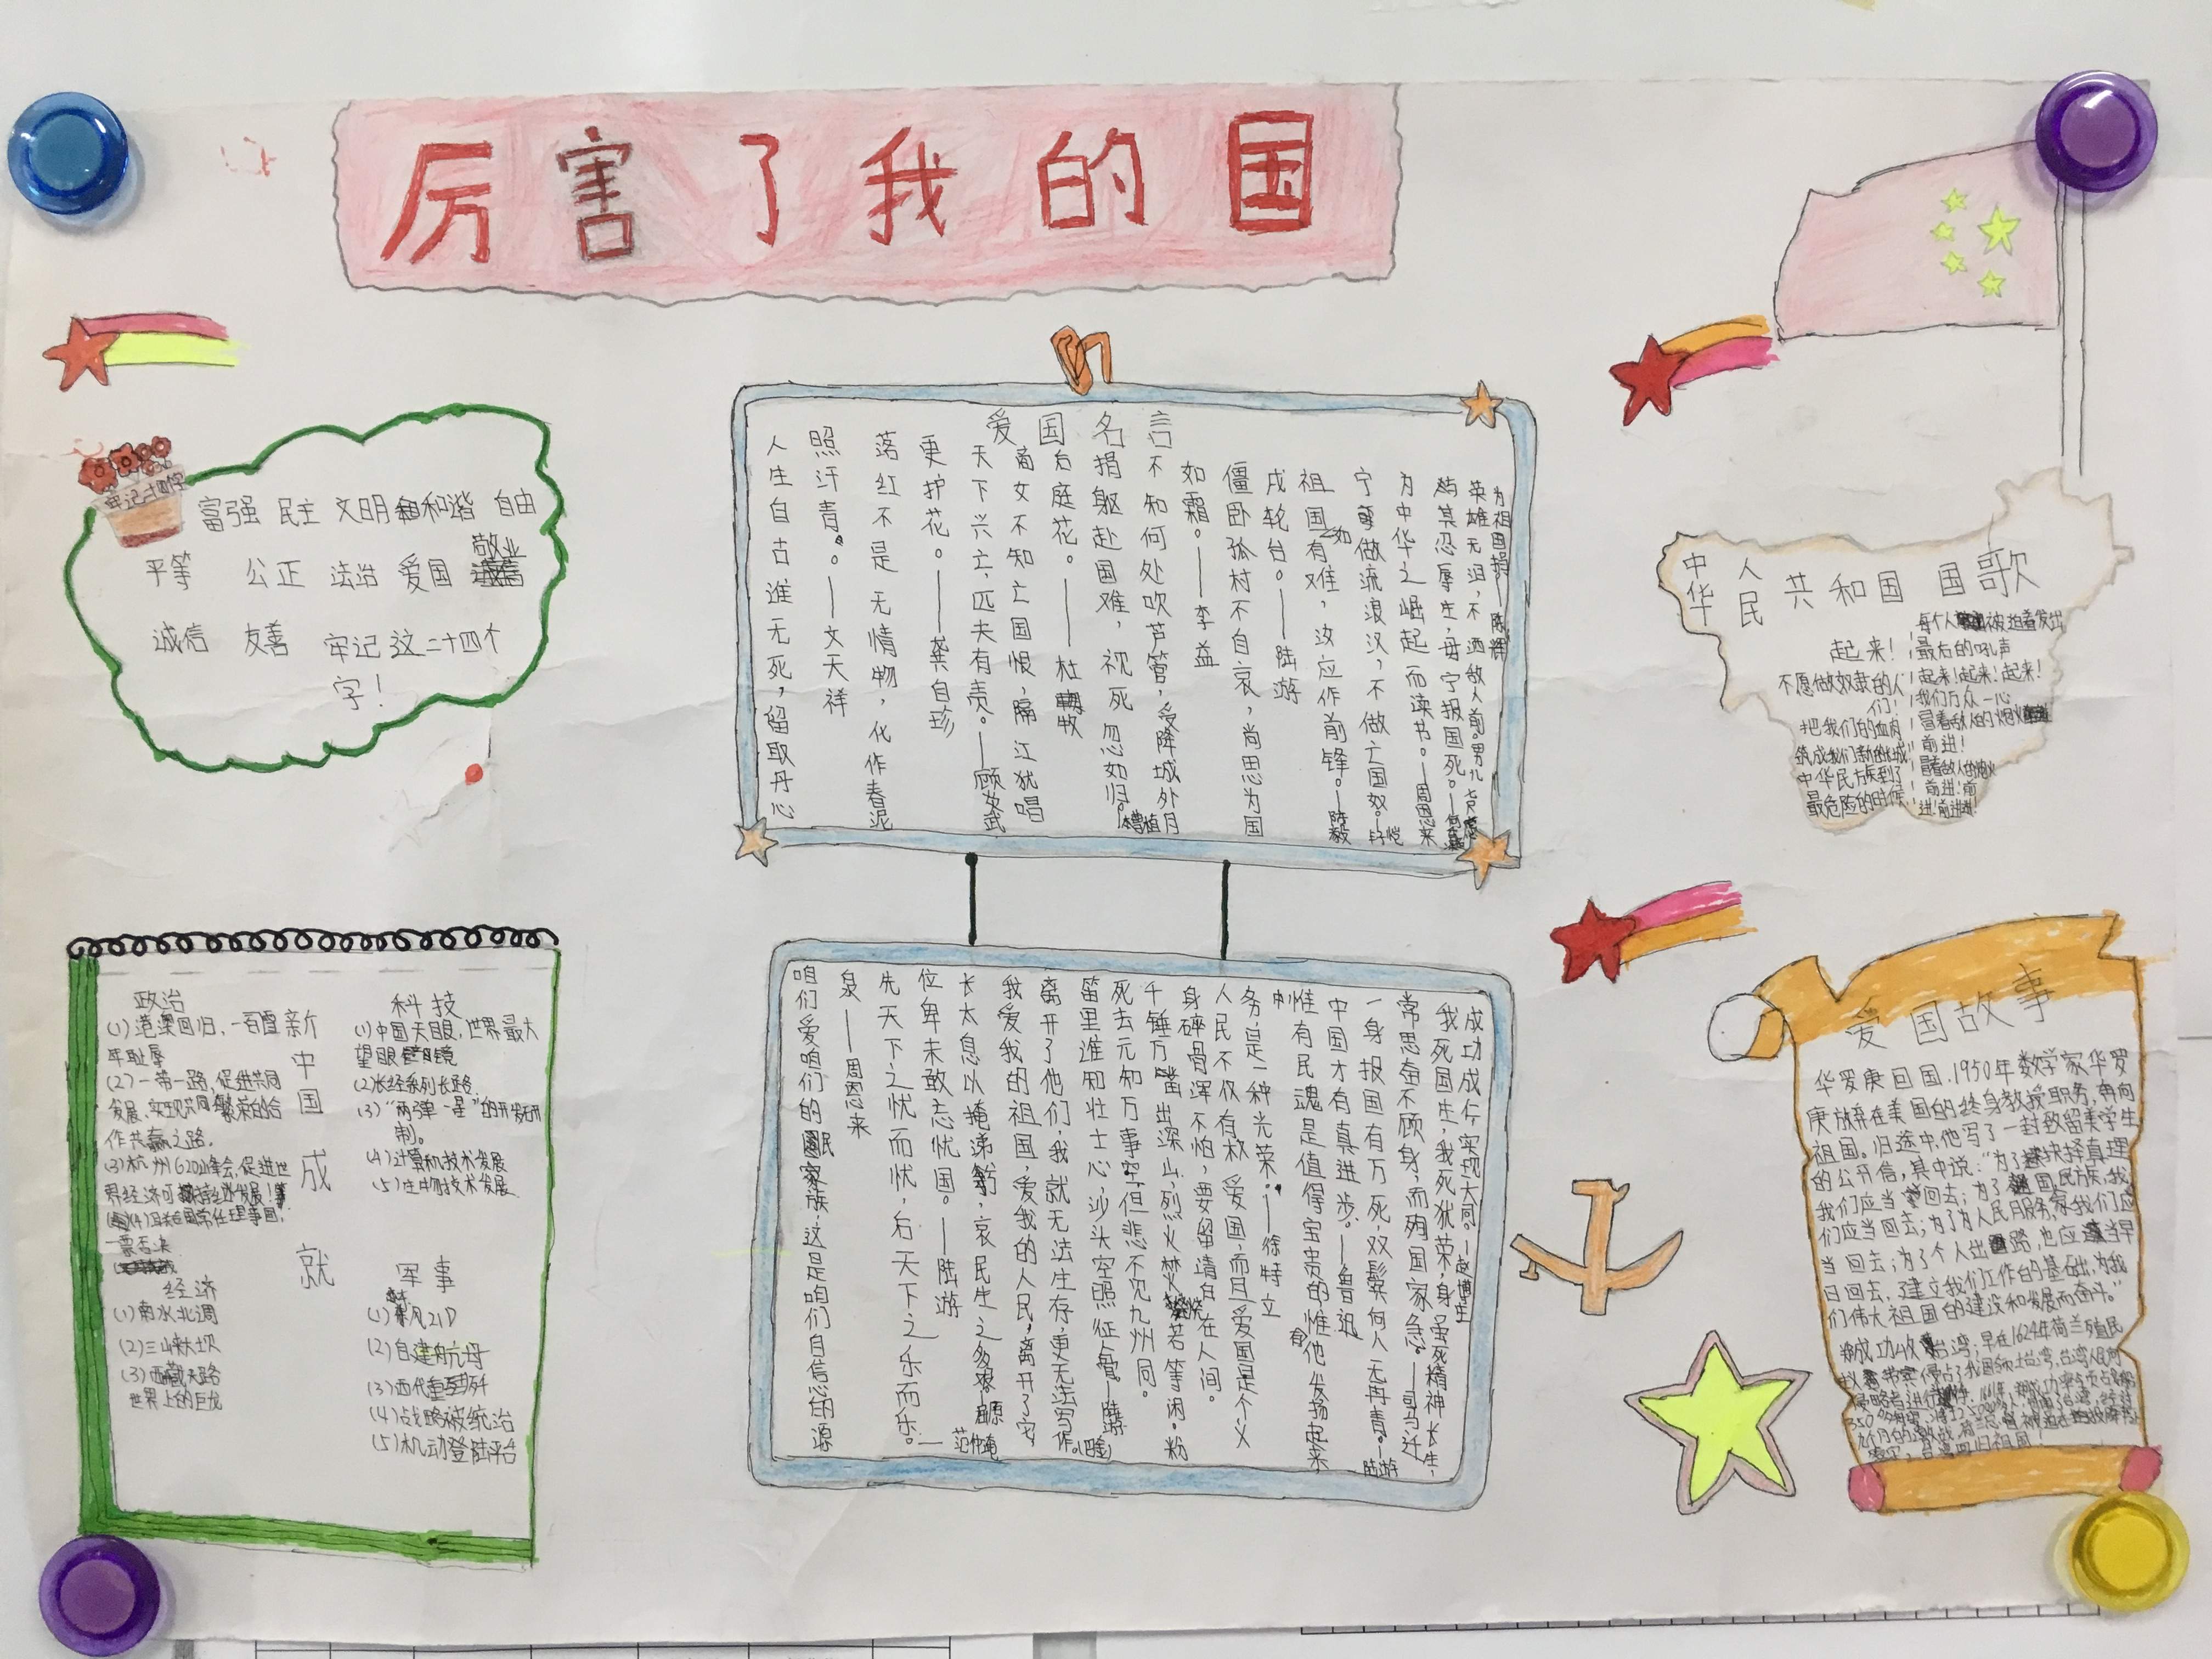 厉害了我的国
牢记二十四字
富强 民主 文明 和谐 自由
平等 公正 法治 爱国 敬业
诚信 友善 牢记这二十四个
字!
爱国名言
人生自古谁无死,留取丹心
照汗青。——文天祥
落红不是无情物,化作春泥
更护花。——龚自珍
天下兴亡,匹夫有责。——顾炎武
商女不知亡国恨,隔江犹唱
后庭花。——杜牧
捐躯赴国难,视死忽如归。
不知何处吹芦管,受降城外月
如霜。——李益
僵卧孤村不自哀,尚思为国
戍轮台。——陆游
祖国如有难,汝应作前锋。——陈毅
宁做流浪汉,不做亡国奴。
为中华之崛起而读书。——周恩来
某忍辱生,毋宁报国死。
英雄无泪,不洒敌人前。男儿七尺
为祖国捐——陈辉
咱们爱咱们的民族,这是咱们自信心的源
泉——周恩来
先天下之忧而忧,后天下之乐而乐。——
范仲淹
位卑未敢忘忧国。——陆游
长太息以掩涕兮,哀民生之多艰。屈原
我爱我的祖国,爱我的人民,离开了它
离开了他们,我就无法生存,更无法写作。
笛里谁知壮士心,沙头空照征人骨。
死去元知万事空,但悲不见九州同。
千锤万凿出深山,烈火焚烧若等闲。粉
身碎骨浑不怕,要留清白在人间。
人民不仅有权爱国,而且爱国是个义
务,是一种光荣。——徐特立
惟有民魂是值得宝贵的,惟有他发扬起来
中国才有真进步。——鲁迅
一身报国有万死,双鬓向人无再青。——陆游
常思奋不顾身,而殉国家急。——司马迁
我死国生,我死犹荣,身虽死精神长生,
成功成仁,实现大同。——赵博生
中华人民共和国 国歌
起来!
不愿做奴隶的人
们!
把我们的血肉
筑成我们新的长城
中华民族到了
最危险的时候!
每个人被迫着发出
最后的吼声
起来!起来!起来!
我们万众一心
冒着敌人的炮火
前进!
冒着敌人的炮火
前进!前
进!前进!进!
新中国成就
政治
(1)港澳回归,一百雪
年耻辱
(2)一带一路,促进共同
发展,实现共同繁荣的合
作共赢之路.
(3)杭州G20峰会,促进世
界经济可持续发展!
一票否决
经济
(1)南水北调
(2)三峡大坝
(3)西藏天路
世界上的巨龙
科技
(1)中国天眼,世界最大
望眼镜
(3)“两弹一星”的开发研
制。
(4)计算机技术发展
(5)生物技术发展
军事
(2)自建航母
(4)战略被统治
(5)机动登陆平台
爱国故事
华罗庚回国.1950年数学家华罗
庚放弃在美国的终身教授职务,奔向
祖国。归途中,他写了一封致留美学生
的公开信,其中说:“为了抉择真理
我们应当回去;为了国家民族,我
们应当回去;为了为人民服务,我们应
当回去;为了个人出路,也应当早
日回去,建立我们工作的基础,为我
们伟大祖国的建设和发展而奋斗。”